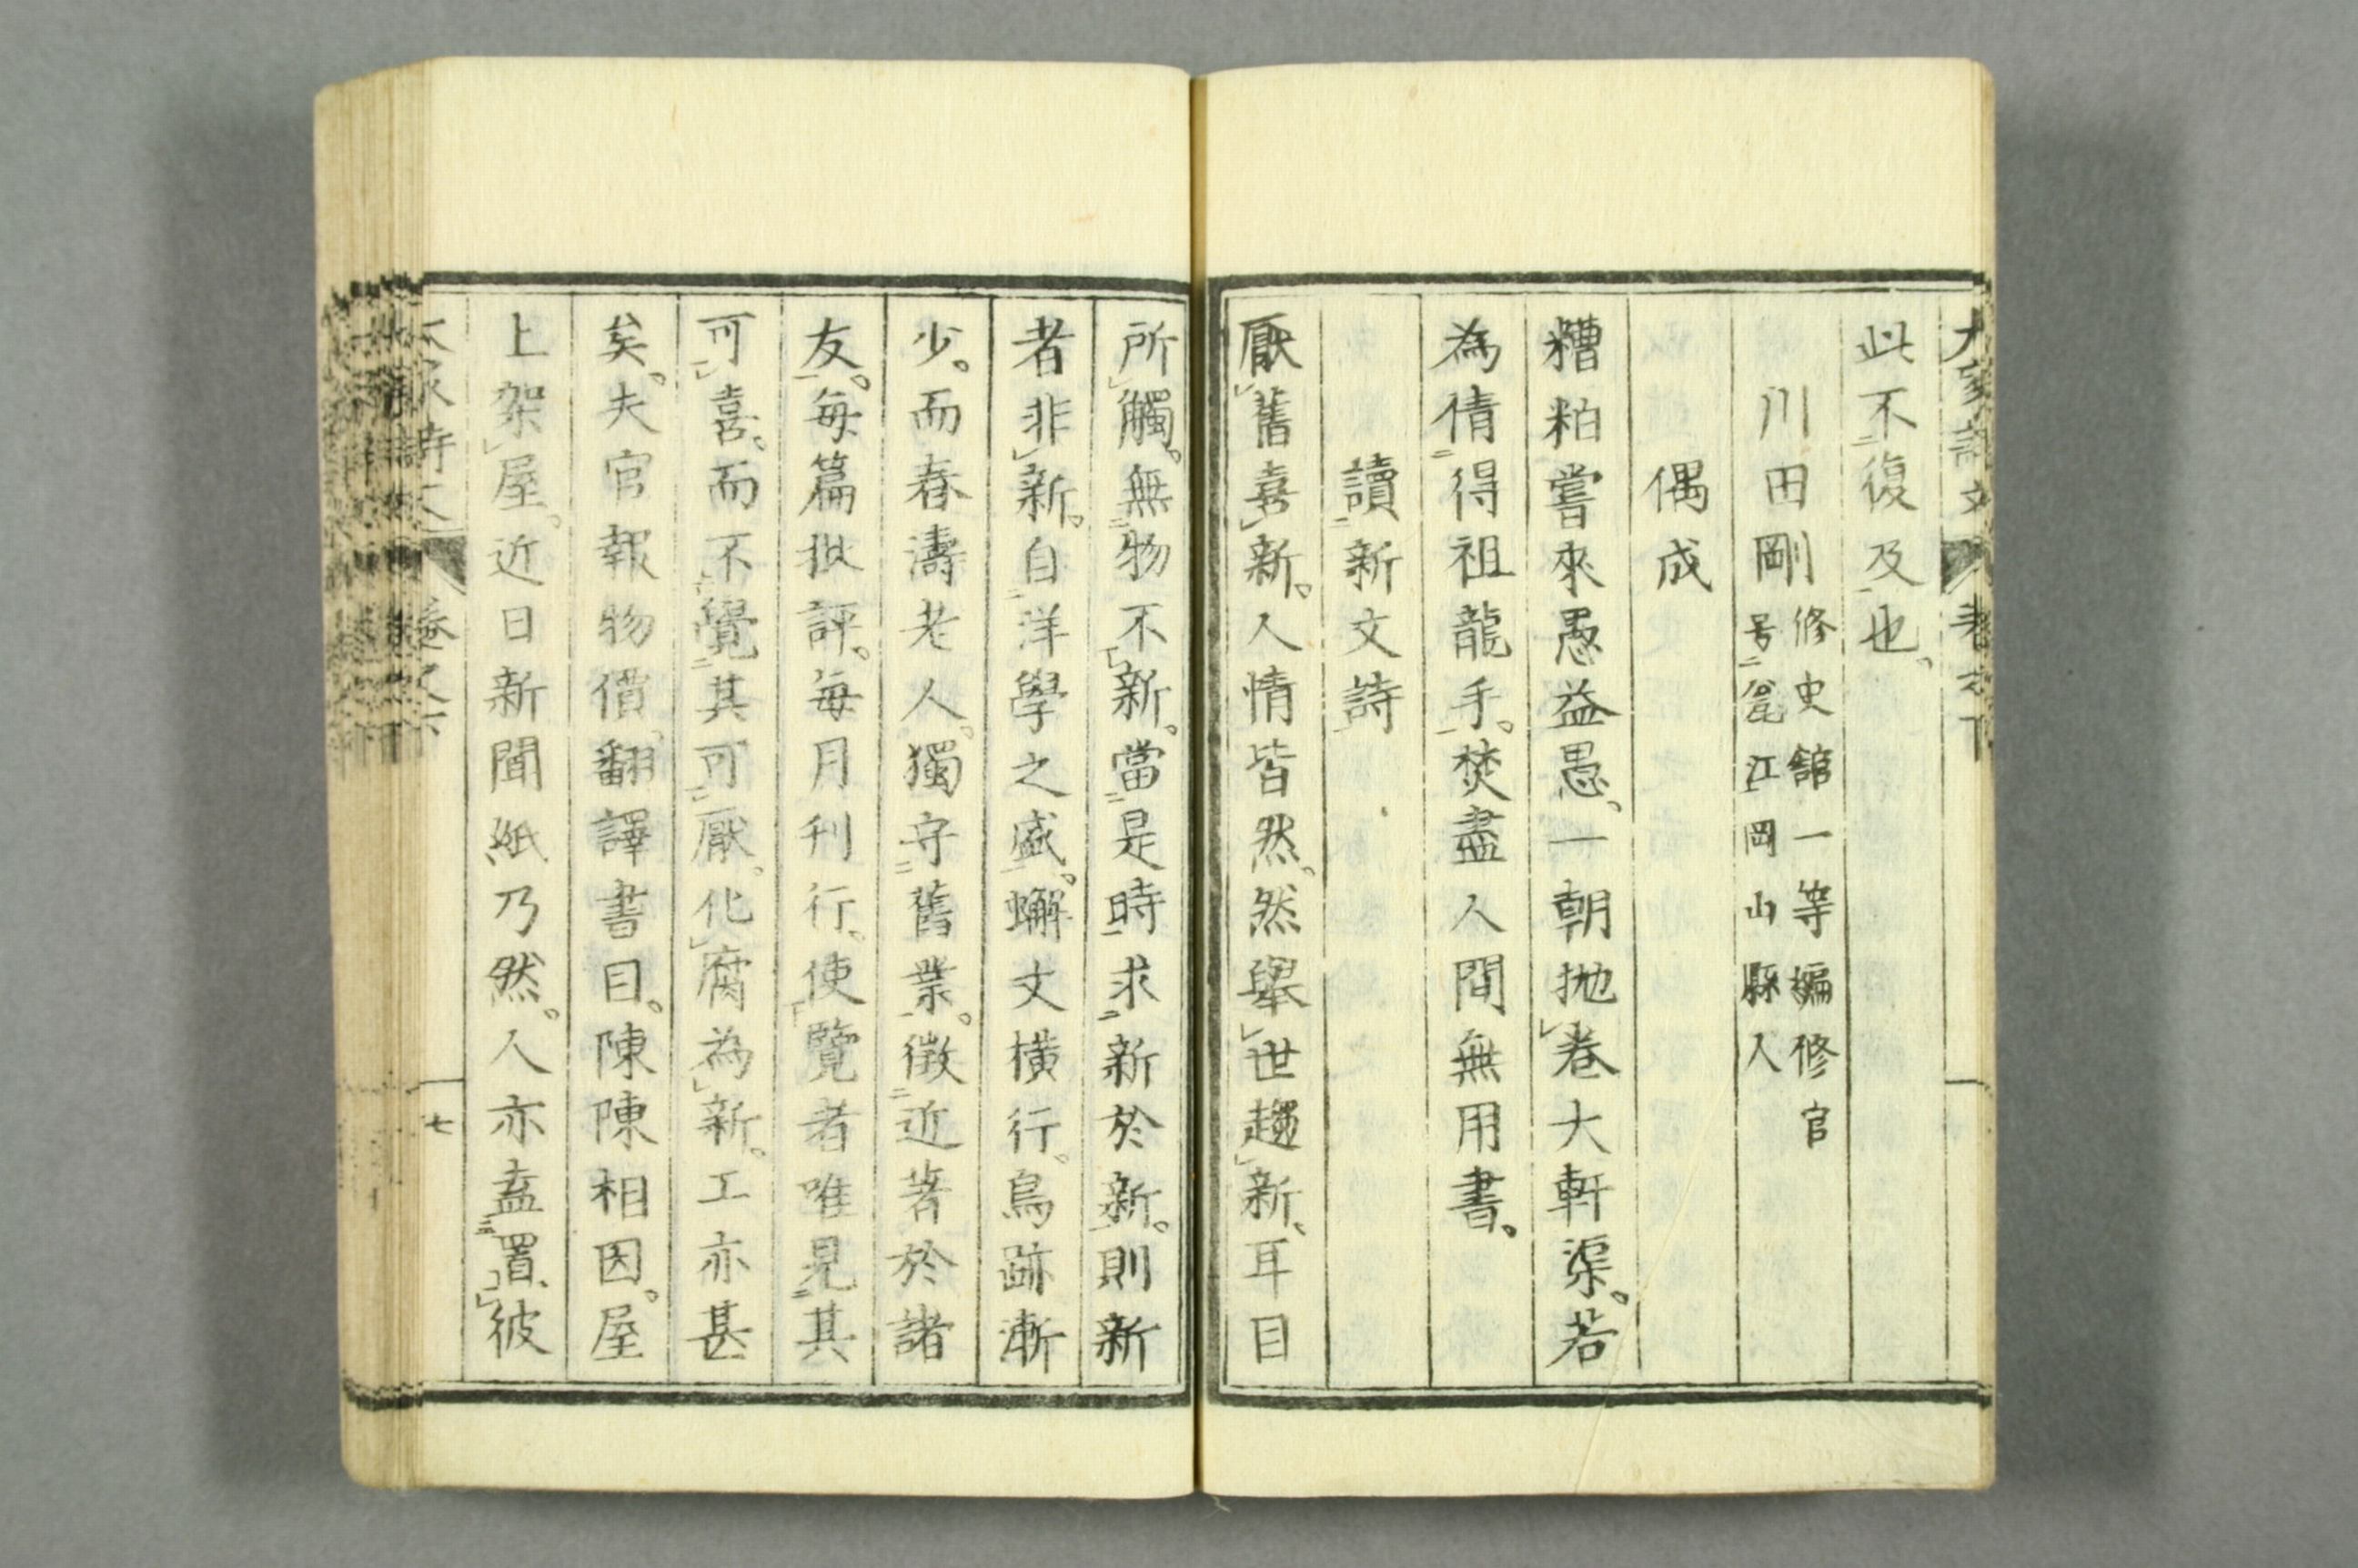 此不復及也、
川田剛 修史舘一等編修官
号瓮江岡山縣人
偶成
糟粕嘗來愚益愚、一朝抛卷大軒渠。若
為倩得祖龍手。焚盡人間無用書。
讀新文詩
厭舊喜新。人情皆然。然舉世趨新、耳目
所觸。無物不新。當是時求新於新。則新
者非新。自洋學之盛。蠏文橫行。鳥跡漸
少。而春濤老人。獨守舊業。徵近著於諸
友。每篇批評。每月刊行。使覽者唯見其
可喜。而不覺其可厭。化腐為新。工亦甚
矣。夫官報物價。翻譯書目。陳陳相因。屋
上架屋。近日新聞紙乃然。人亦盍置、彼
七